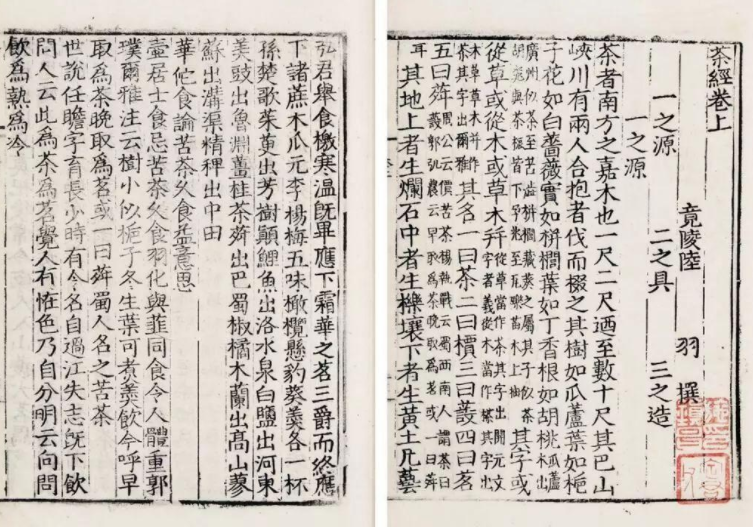 茶經卷上
竟陵陸羽撰
一之源 二之具 三之造
一之源
茶者南方之嘉木也一尺二尺迺至數十尺其巴山
峽川有兩人合抱者伐而掇之其樹如瓜蘆葉如梔
子花如白薔薇實如栟櫚葉如丁香根如胡桃瓜蘆木出
廣州似茶至苦澁栟櫚蒲葵之屬其子似茶胡桃與茶根皆下孕兆至瓦礫苗木上抽其字或
從草或從木或草木幷從草當作茶其字出開元文字音義從木當作㮆其字出
本草草木并作荼其字出爾雅其名一曰茶二曰檟三曰蔎四曰茗
五曰荈周公云檟苦荼揚執戟云蜀西南人謂茶曰蔎郭弘農云早取為茶晚取為茗或一曰荈
耳其地上者生爛石中者生櫟壤下者生黃土凡藝
弘君舉食檄寒溫旣畢應下霜華之茗三爵而終應
下諸蔗木瓜元李楊梅五味橄欖懸豹葵羹各一杯
孫楚歌茱萸出芳樹顚鯉魚出洛水泉白鹽出河東
美豉出魯淵薑桂茶荈出巴蜀椒橘木蘭出高山蓼
蘇出溝渠精稗出中田
華佗食論苦茶久食益意思
壺居士食忌苦茶久食羽化與韮同食令人體重郭
璞爾雅注云樹小似梔子冬生葉可煑羹飲今呼早
取為茶晚取為茗或一曰荈蜀人名之苦茶
世說任瞻字育長少時有令名自過江失志旣下飲
問人云此為茶為茗覺人有恠色乃自分明云向問
飲為熱為冷